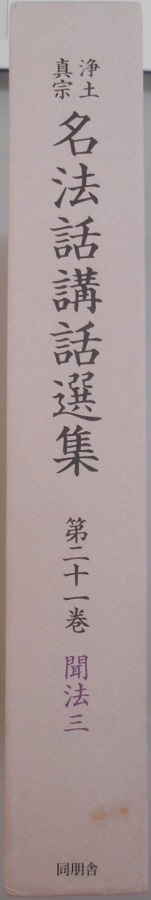 浄土真宗
名法話講話選集
第二十一巻
聞法三
同朋舎